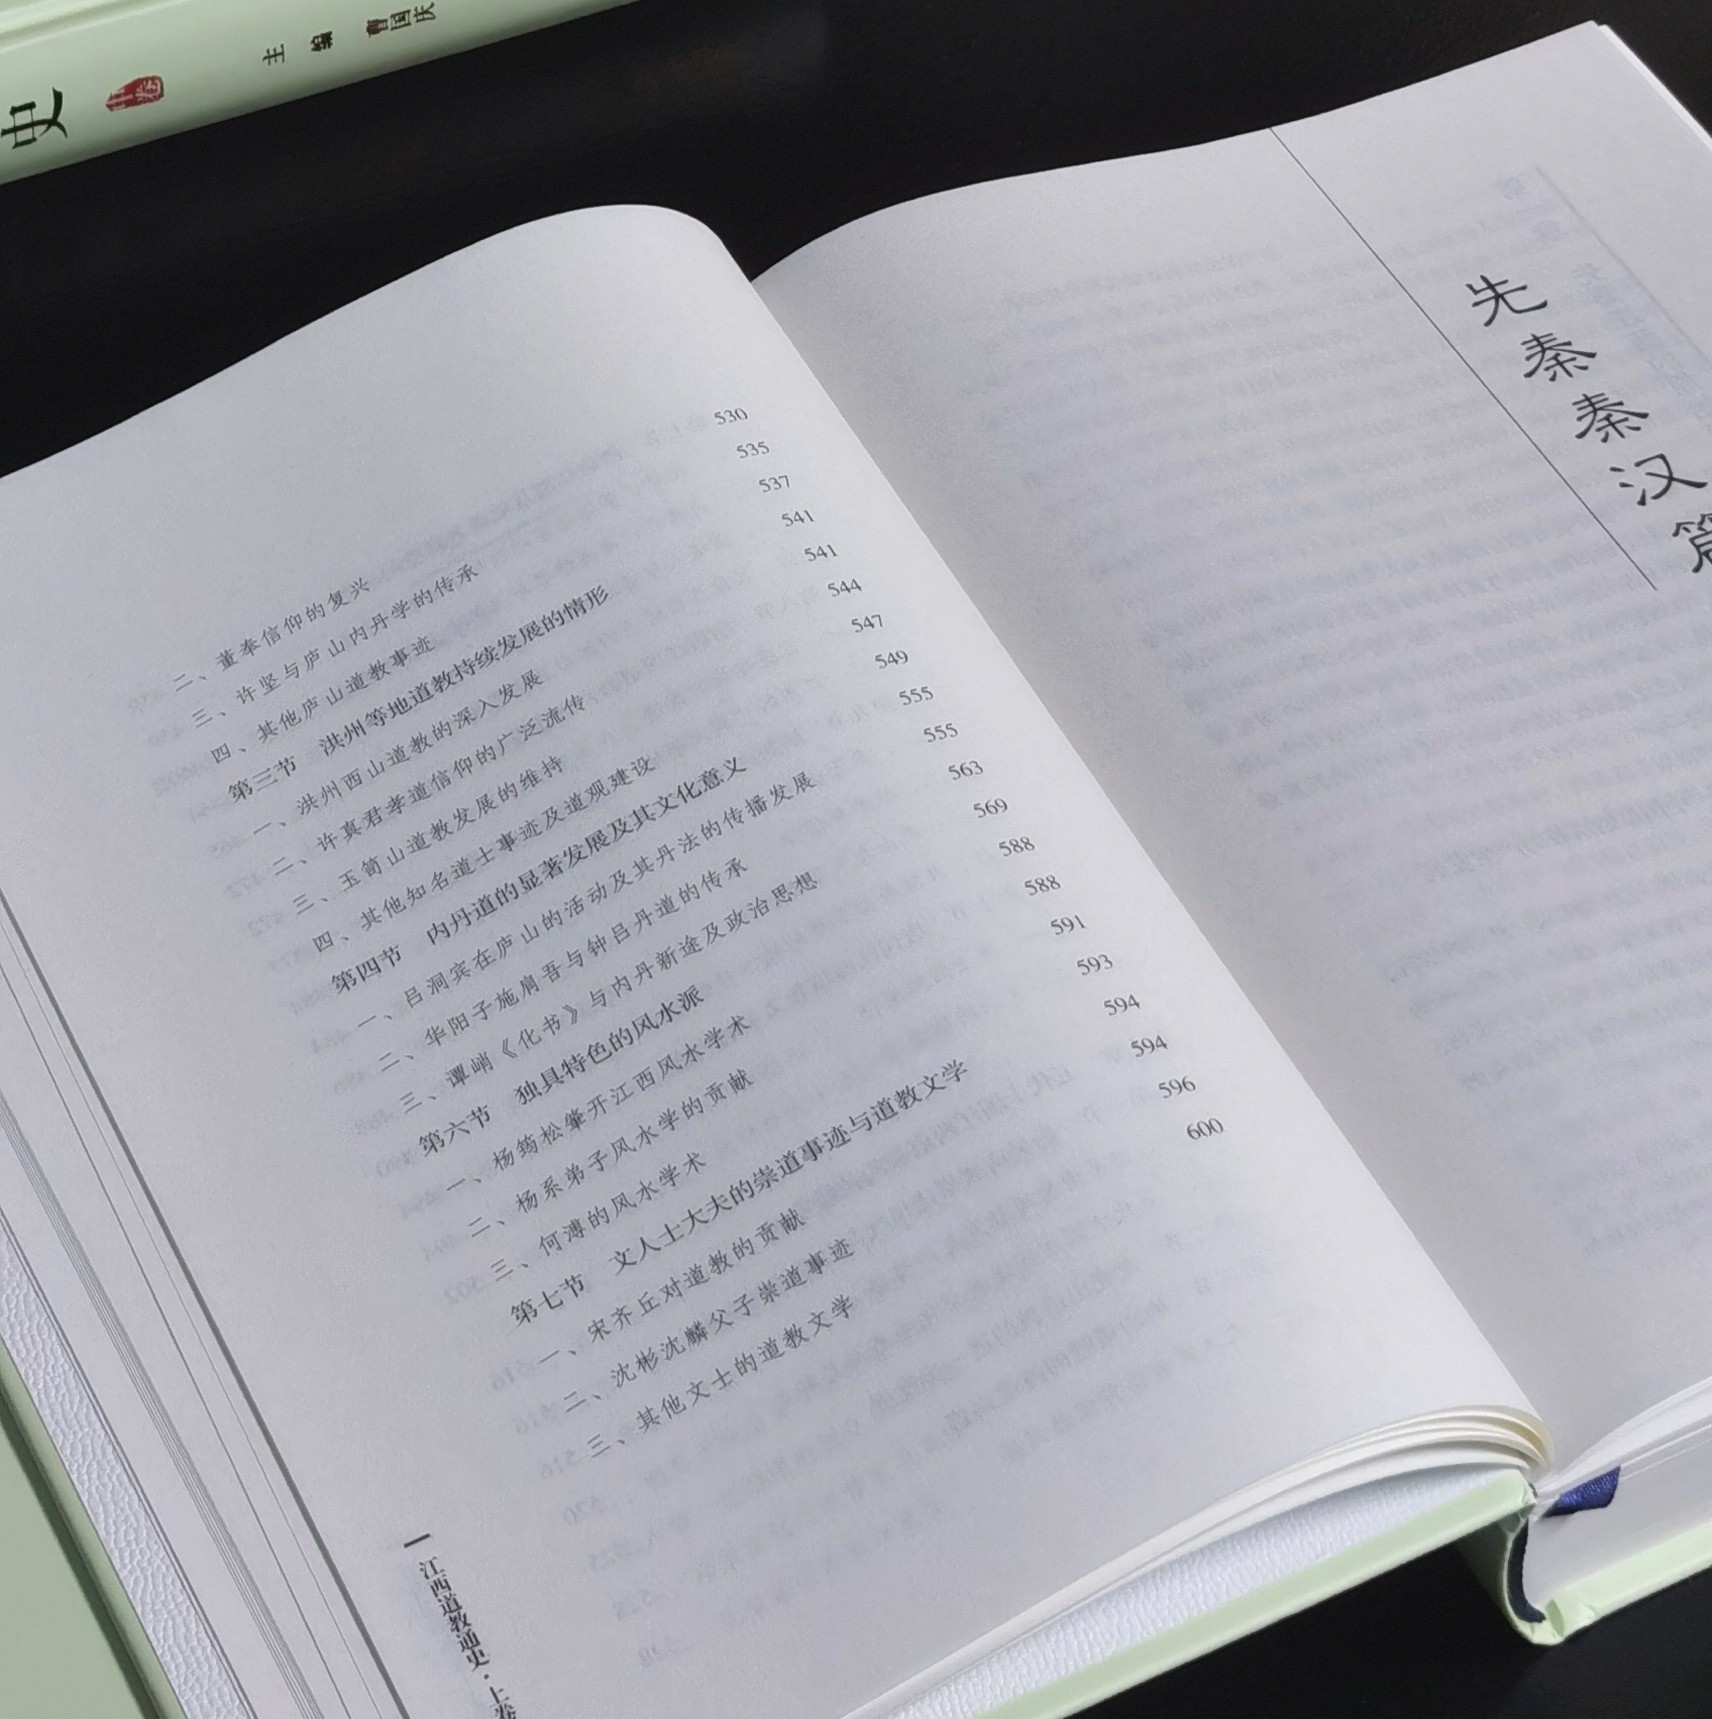 史
中卷
主 编 曹国庆
二、董奉信仰的复兴 530
三、许坚与庐山内丹学的传承 535
四、其他庐山道教事迹 537
第三节 洪州等地道教持续发展的情形 541
一、洪州西山道教的深入发展 541
二、许真君孝道信仰的广泛流传 544
三、玉笥山道教发展的维持 547
四、其他知名道士事迹及道观建设 549
第四节 内丹道的显著发展及其文化意义 555
一、吕洞宾在庐山的活动及其丹法的传播发展 555
二、华阳子施肩吾与钟吕丹道的传承 563
三、谭峭《化书》与内丹新途及政治思想 569
第六节 独具特色的风水派 588
一、杨筠松肇开江西风水学术 588
二、杨系弟子风水学的贡献 591
三、何溥的风水学术 593
第七节 文人士大夫的崇道事迹与道教文学 594
一、宋齐丘对道教的贡献 594
二、沈彬沈麟父子崇道事迹 596
三、其他文士的道教文学 600
江西道教通史·上卷
先秦秦汉篇